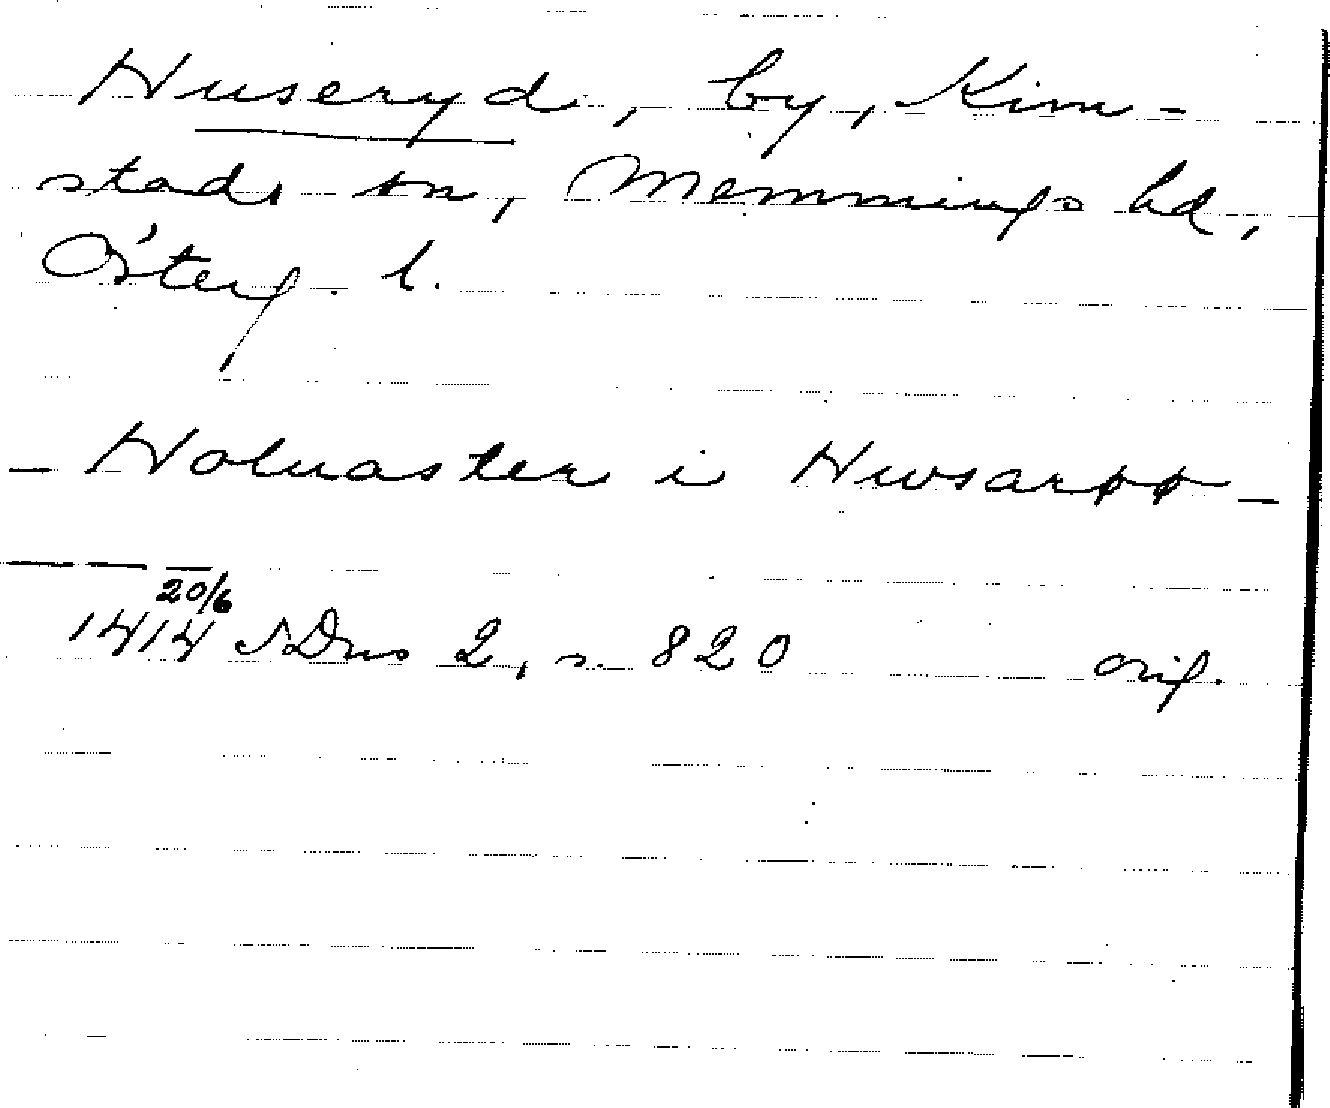 Huseryd, by, Kim-
stads sn, Memmings hd,
Österg. l.
– Holuaster i Hwsarøø –
20/6
1414 SDns 2, s. 820 orig.